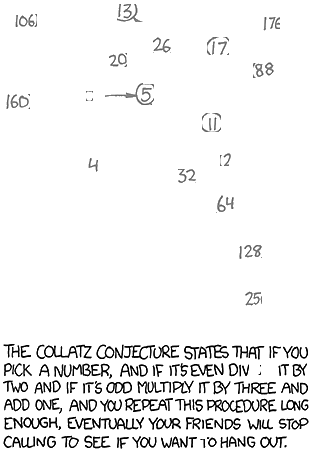 106
13
176
26
17
20
88
160
5
11
4
12
32
64
128
THE COLLATZ CONJECTURE STATES THAT IF YOU
PICK A NUMBER, AND IF IT'S EVEN IT BY
TWO AND IF IT'S ODD MULTIPLY IT BY THREE AND
ADD ONE, AND YOU REPEAT THIS PROCEDURE LONG
ENOUGH, EVENTUALLY YOUR FRIENDS WILL STOP
CALLING TO SEE IF YOU WANT TO HANG OUT.